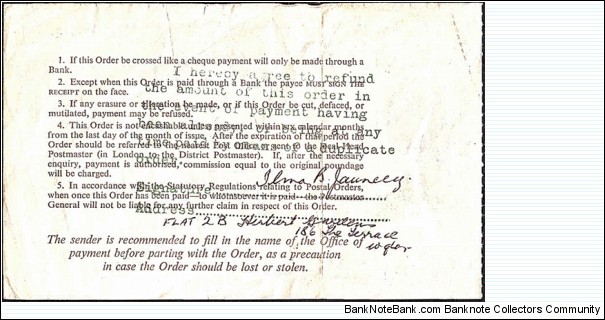 1. If this Order be crossed like a cheque payment will only be made through a
Bank.
I hereby agree to refund
2. Except when this Order is paid through a Bank the payee MUST SIGN THE
RECEIPT on the face.
the amount of this order in
3. If any erasure or alteration be made, or if this Order be cut, defaced, or
the event of payment having
mutilated, payment may be refused.
4. This Order is not cashable unless presented within six calendar months
from the last day of the month of issue. After the expiration of that period the
Order should be referred to the nearest Post Office or sent to the Head
Postmaster (in London to the District Postmaster). If, after the necessary
order.
enquiry, payment is authorised, commission equal to the original poundage
will be charged.
5. In accordance with the Statutory Regulations relating to Postal Orders,
Signature
when once this Order has been paid to whomsoever it is paid the Postmaster
General will not be liable for any further claim in respect of this Order.
Address
FLAT 2B Herbert Gardens
186 The Terrace
The sender is recommended to fill in the name of the Office of
payment before parting with the Order, as a precaution
in case the Order should be lost or stolen.
BankNoteBank.com - Banknote Collectors Community